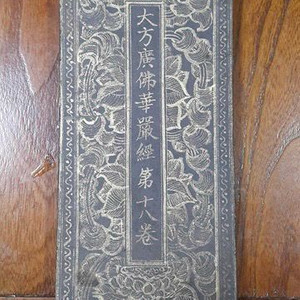 大方廣佛華嚴經第十八卷